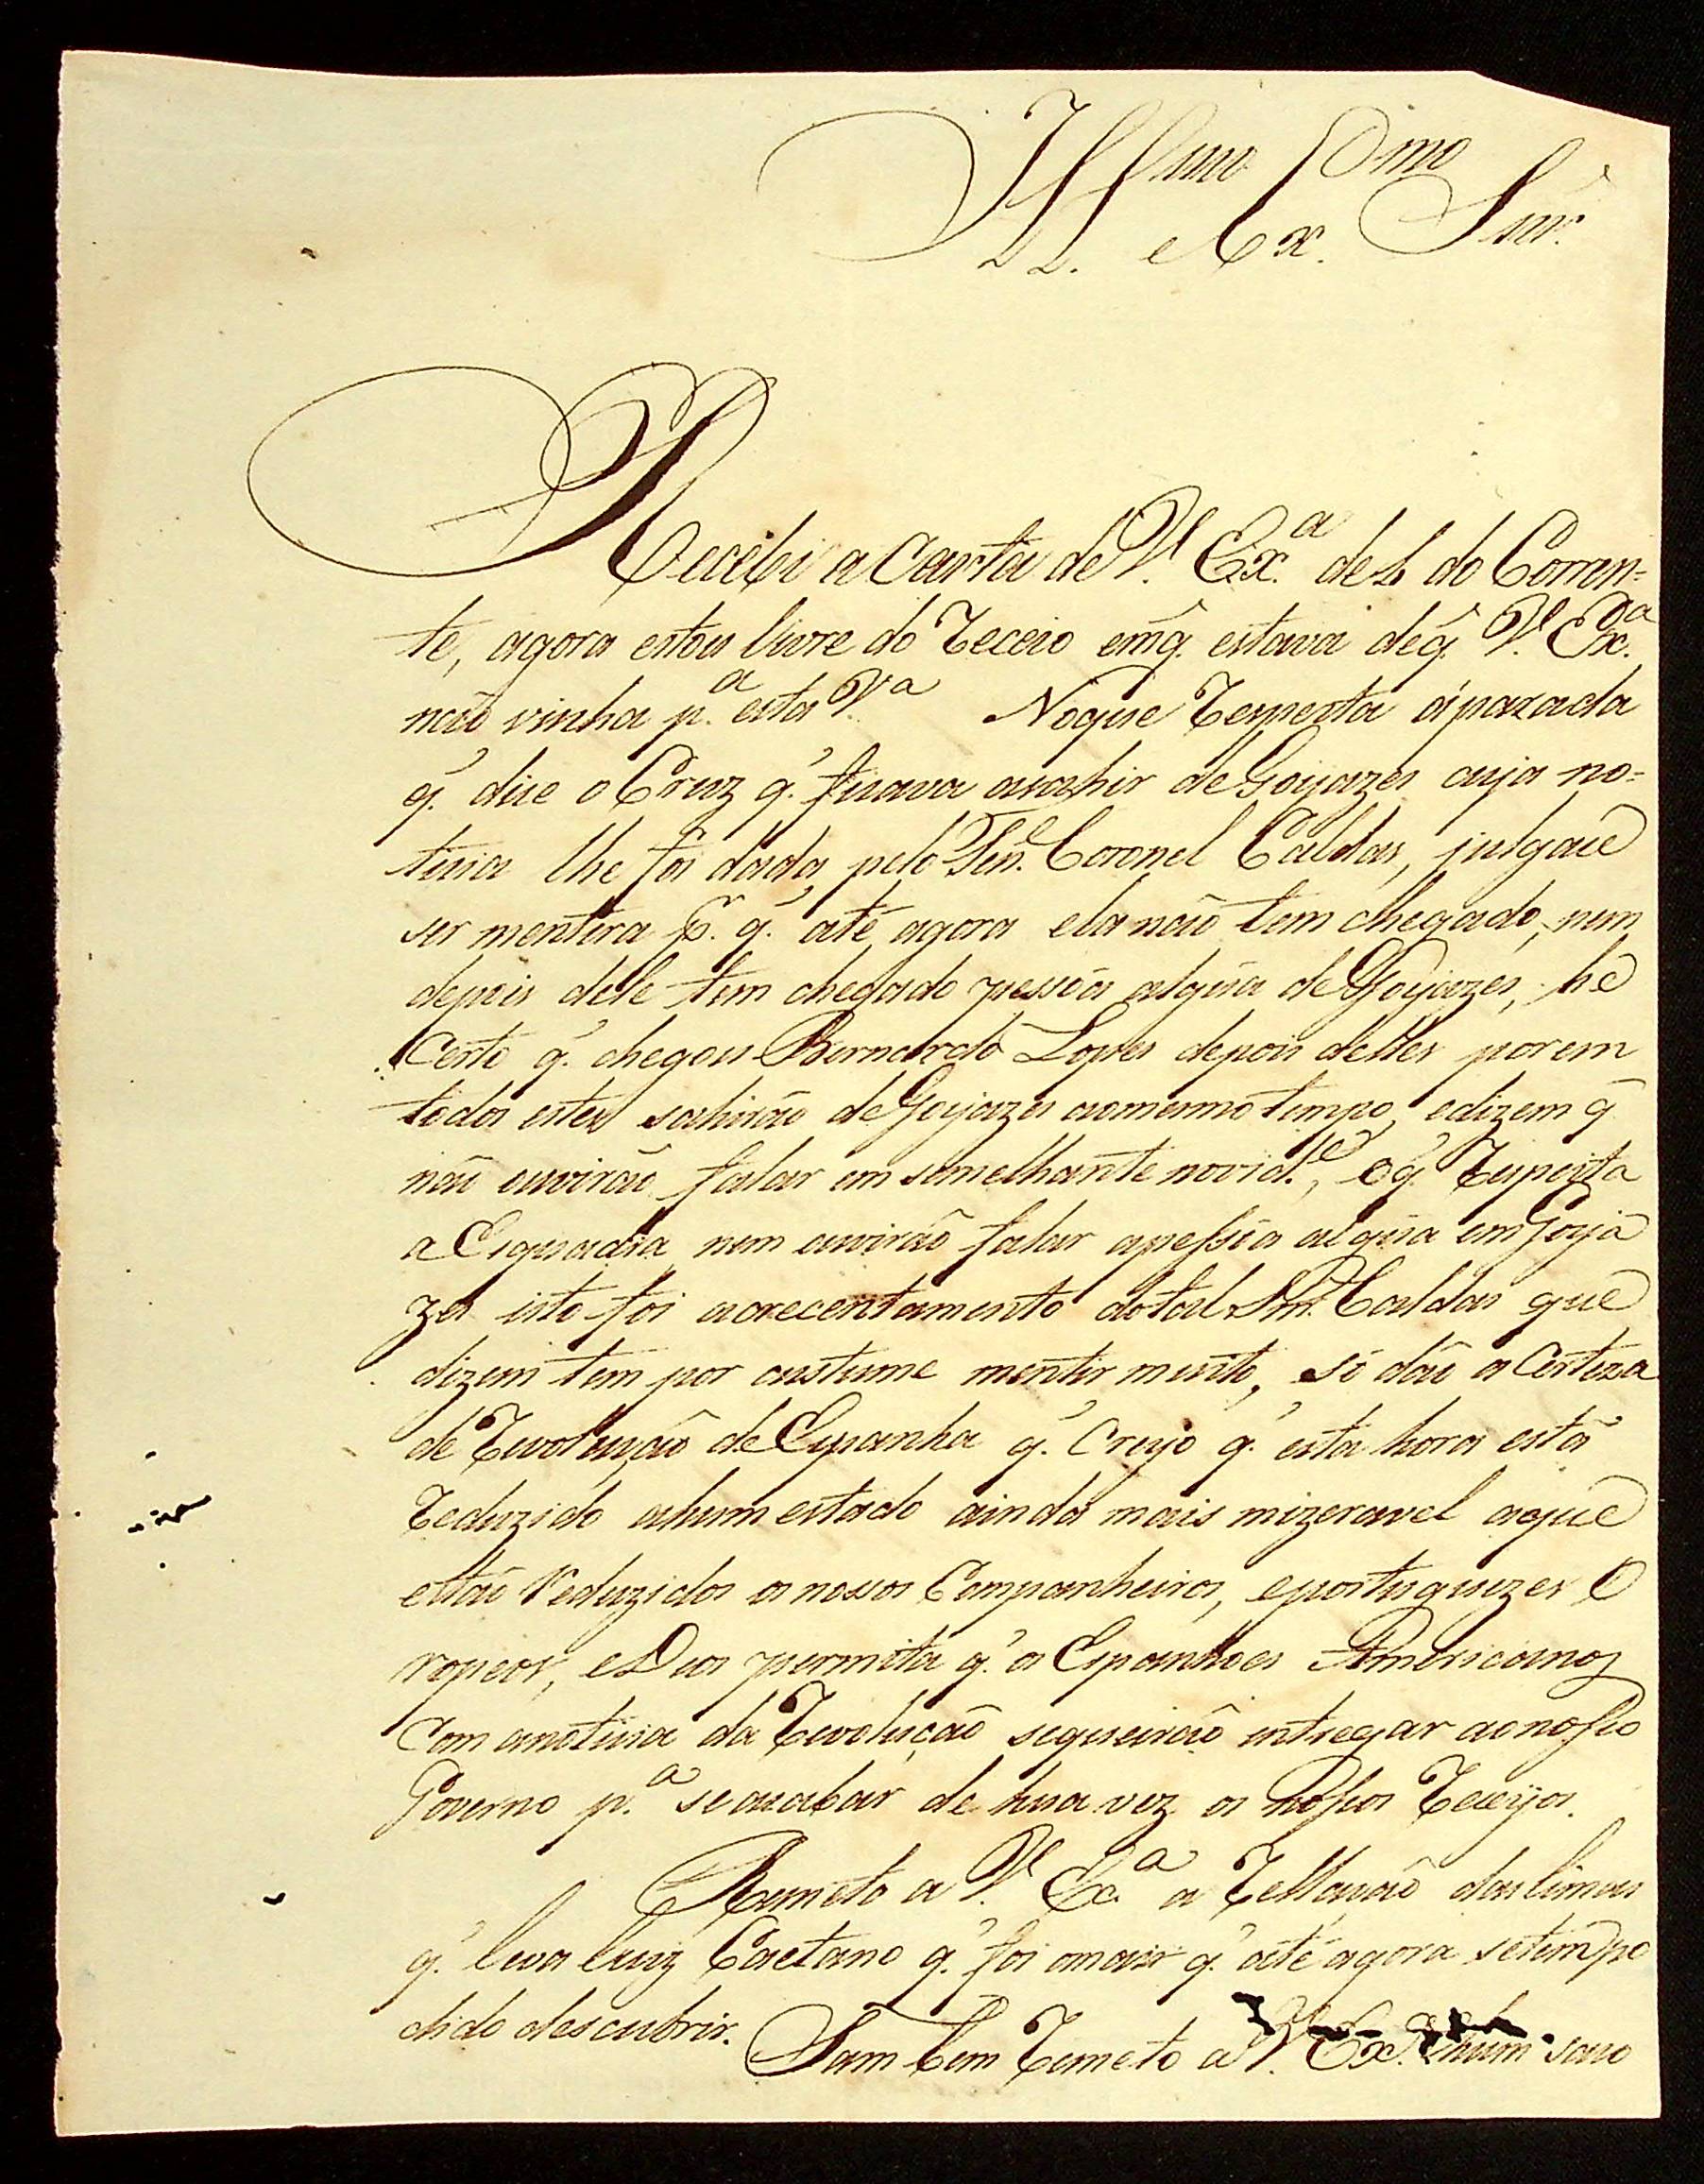 Ill.mo e Ex.mo Snr.
Recebi a Carta de V. Ex.a de do Corren=
te, agora estou livre do Receio em q. estava de q. V. Ex.a
não vinha p.a esta V.a Noque Respesta áparada
q. dise o Cruz q. ficava asahir de Goyazes cuja no=
ticia lhe foi dada pelo Ten.e Coronel Caldas, julgace
ser mentira p.r q. até agora ela não tem chegado, nem
depois dele tem chegado pessóa algũa de Goyazes, he
Certo q. chegou Bernardo Lopes depois delles porem
todos estes sahirão de Goyazes aomesmo tempo, edizem q.
não ouvirão falar em semelhante novid.e, eoq. Respeita
a Esquadra nem ouvirão falar apessóa algũa em Goya
zes isto foi acrecentamento dotal Snr. Caldas que
dizem tem por custume mentir muito, só dão a Certeza
de Revolução de Espanha q. Creyo q. esta hora está
Reduzido ahum estado ainda mais mizeravel aque
estão Reduzidos os nossos Companheiros, eportuguezes E
ropeos, e Deos permita q. os Espanhoes Americanos
Com anoticia da Revolução sequeirão intregar aonosso
Governo p.a seacabar de hua vez os nossos Receyos.
Remeto a V. Ex.a a Rellação daslimas
q. leva Luiz Caetano q. foi omais q. até agora setem po
dido descubrir.
Tambem Remeto a V. Ex.a hum saco